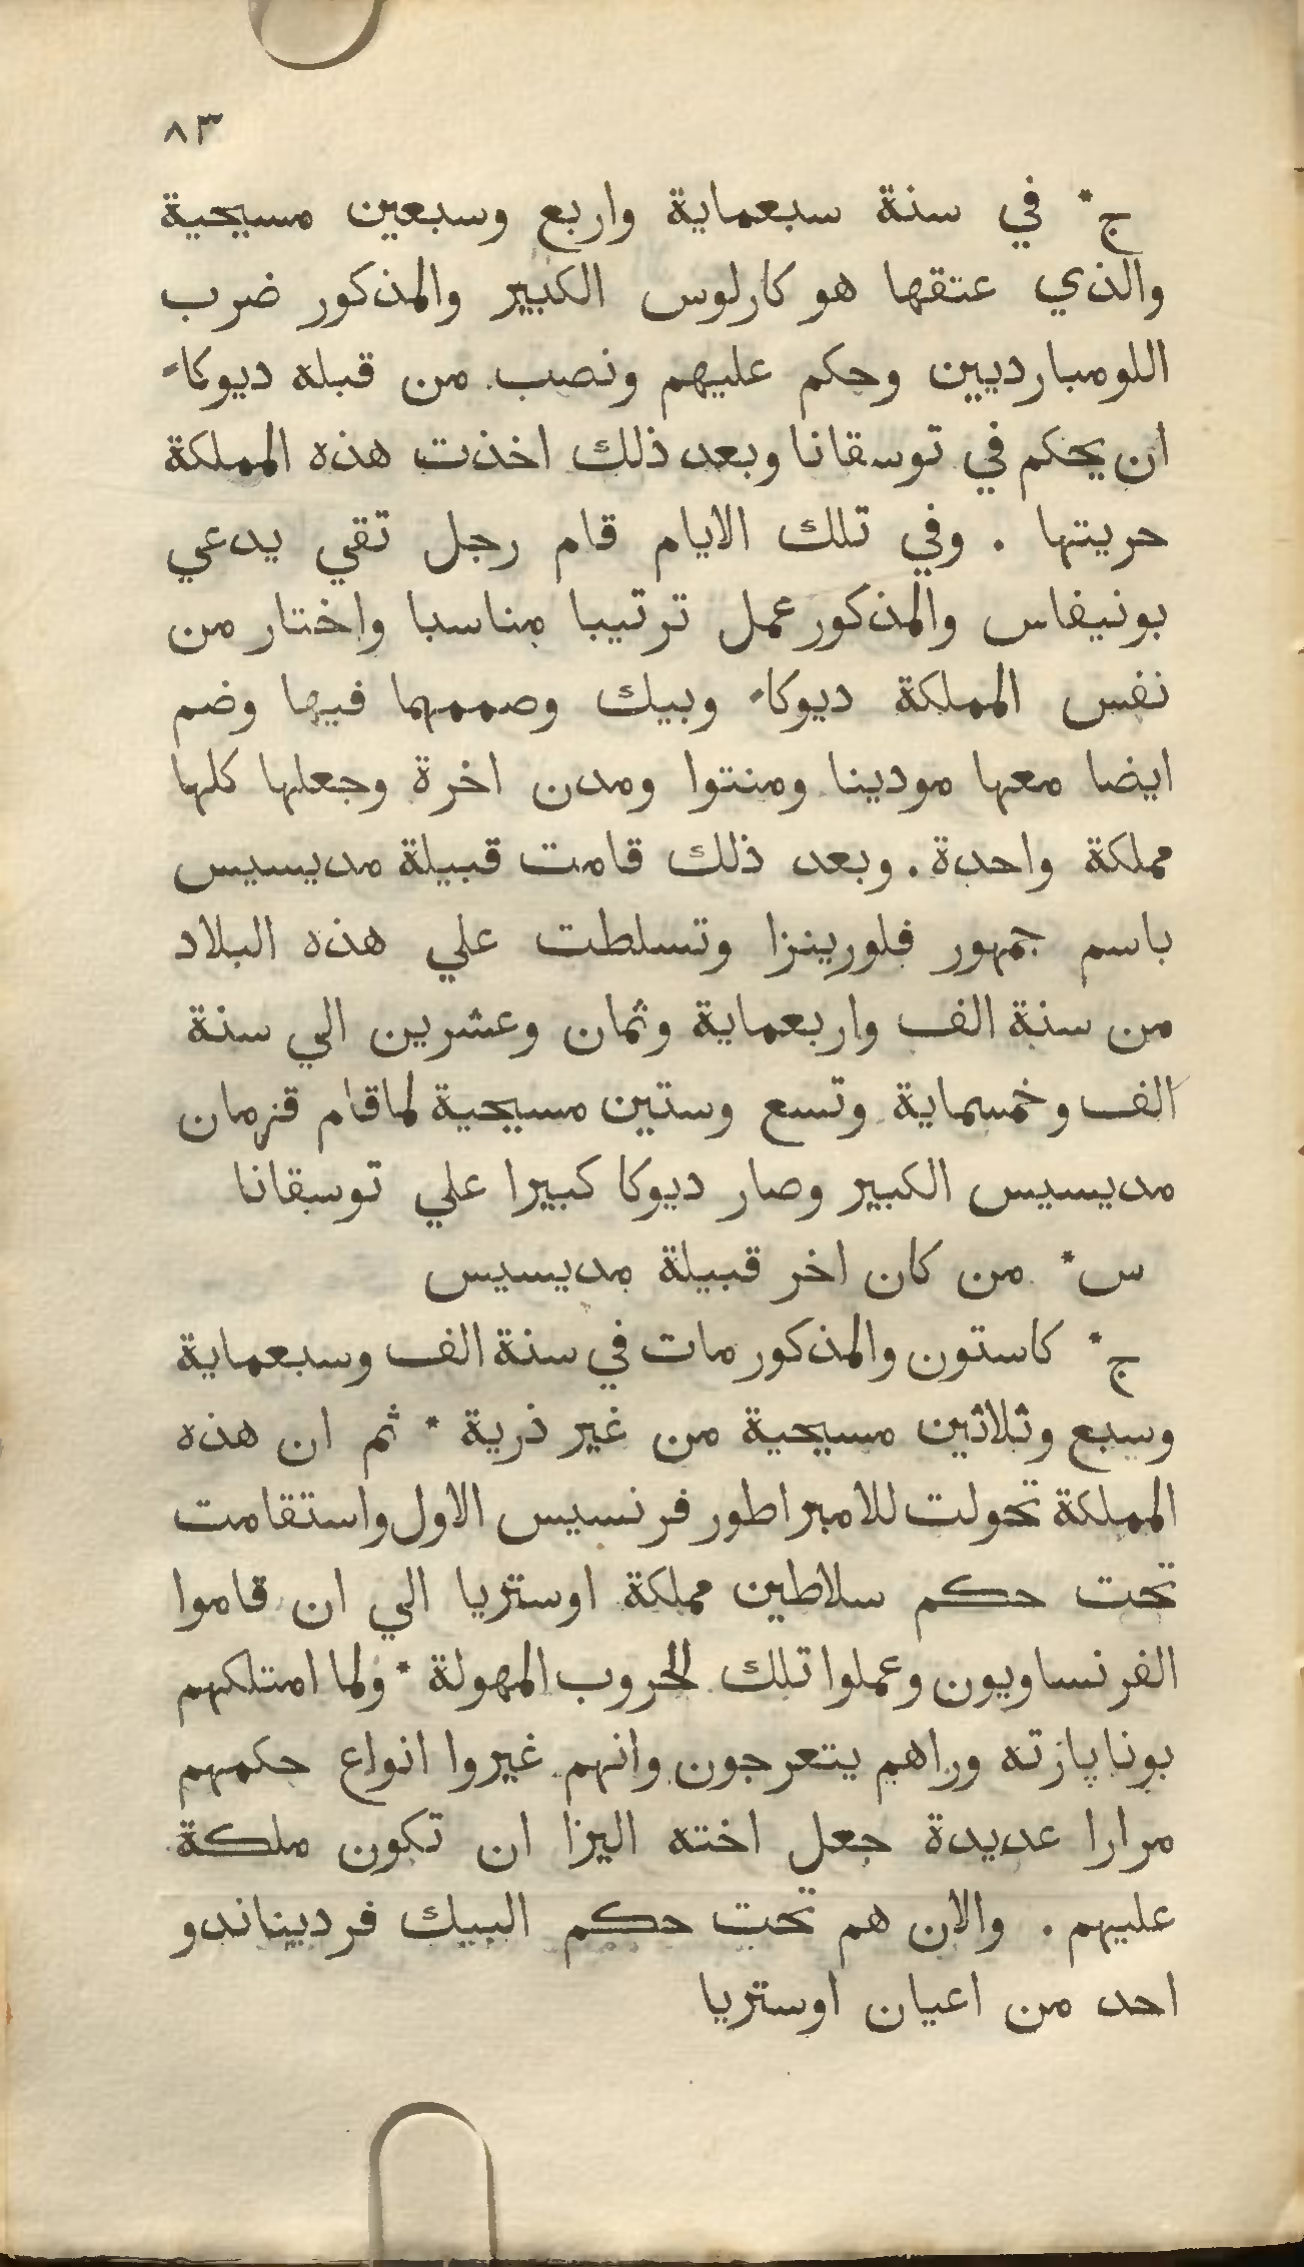 ٨٣
ج* في سنة سبعماية واربع وسبعين مسيحية
والذي عتقها هو كارلوس الكبير والمذكور ضرب
اللومبارديين وحكم عليهم ونصب من قبله ديوكاً
ان يحكم في توسقانا وبعد ذلك اخذت هذه المملكة
حريتها . وفي تلك الايام قام رجل تقي يدعي
بونيفاس والمذكور عمل ترتيبا مناسبا واختار من
نفس المملكة ديوكاً وبيك وصممهما فيها وضم
ايضا معها مودينا ومنتوا ومدن اخرة وجعلها كلها
مملكة واحدة . وبعد ذلك قامت قبيلة مديسيس
باسم جمهور فلورينزا وتسلطت علي هذه البلاد
من سنة الف واربعماية وثمان وعشرين الي سنة
الف وخمسماية وتسع وستين مسيحية لما قام قزمان
مديسيس الكبير وصار ديوكا كبيرا علي توسقانا
س* من كان اخر قبيلة مديسيس
ج* كاستون والمذكور مات في سنة الف وسبعماية
وسبع وثلاثين مسيحية من غير ذرية * ثم ان هذه
المملكة تحولت للامبراطور فرنسيس الاول واستقامت
تحت حكم سلاطين مملكة اوستريا الي ان قاموا
الفرنساويون وعملوا تلك الحروب المهولة * ولما امتلكهم
بوناپارته وراهم يتعرجون وانهم غيروا انواع حكمهم
مرارا عديدة جعل اخته اليزا ان تكون ملكة
عليهم . والان هم تحت حكم البيك فرديناندو
احد من اعيان اوستريا